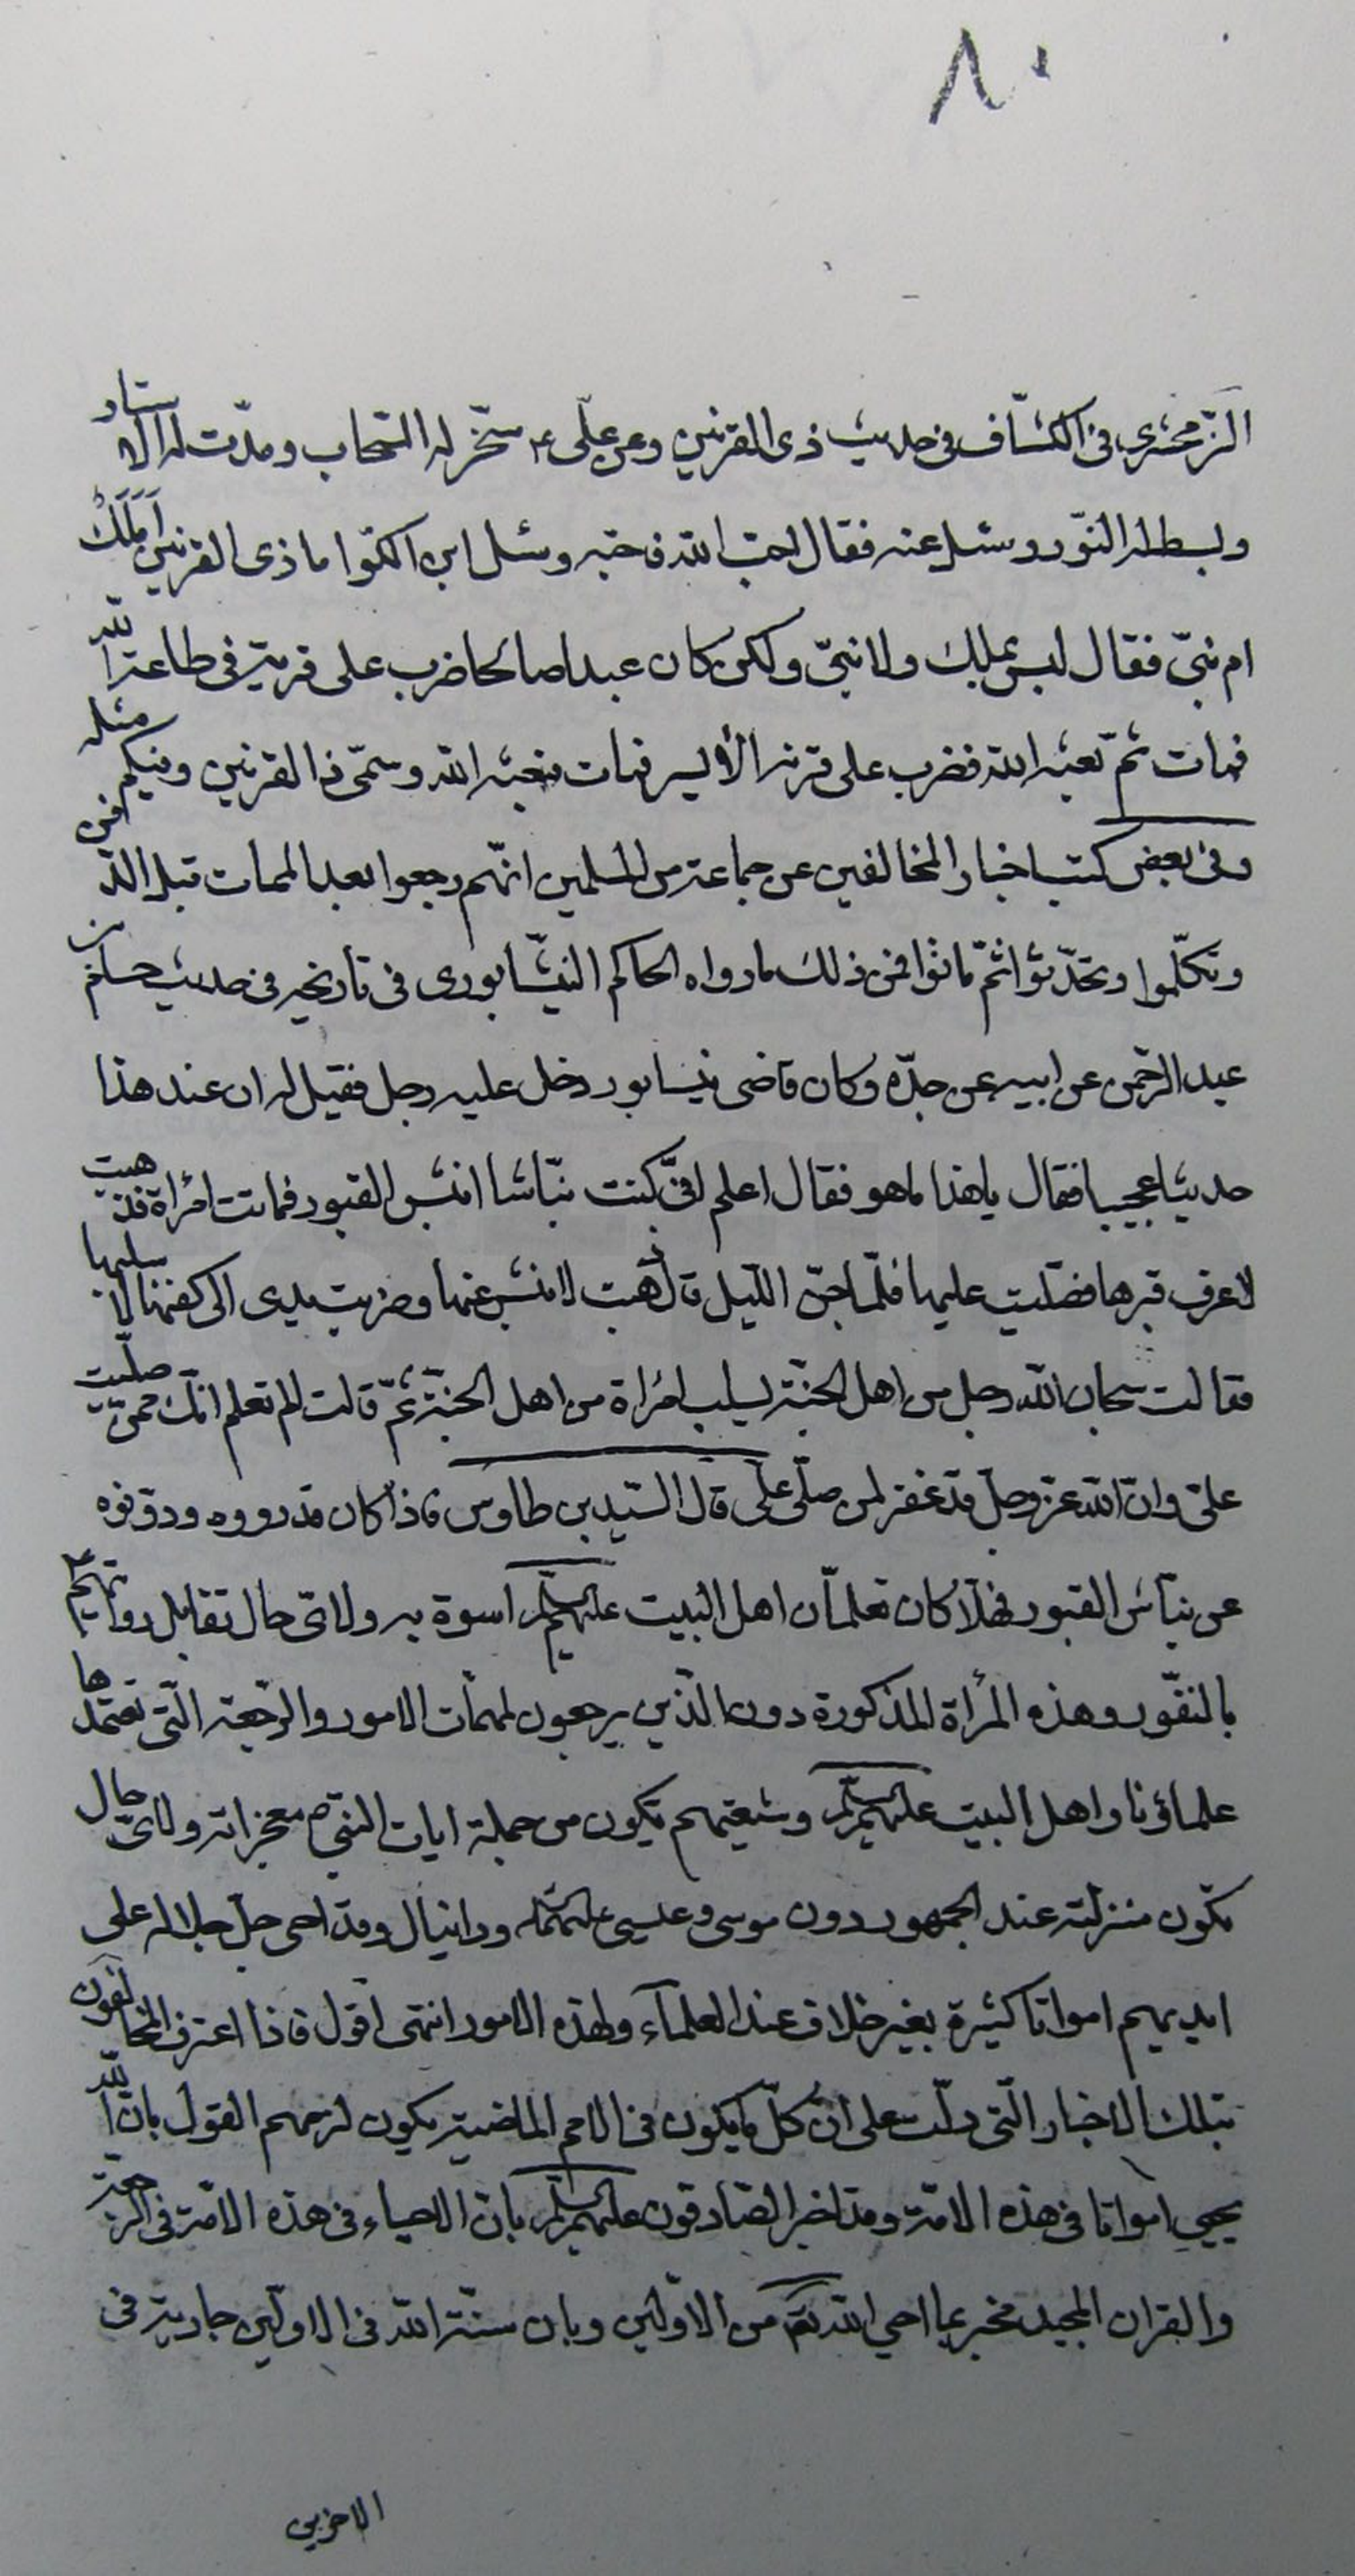 ٨٠
الزمخشرى فى الكشّاف فى حديث ذى القرنين وعن علّى ع سخّر له السّحاب ومدّت له الاستار
وبسط له النّور وسئل عنه فقال احبّ الله فحبّه وسئل ابن الكوّا ما ذى القرنين أملك
ام نبّى فقال ليس بملك ولا نبىّ ولكن كان عبدا صالحا ضرب على قرينه فى طاعة الله
فمات ثمّ بعثه الله فضرب على قرنه الأيسر فمات فبعثه الله وسمّى ذا القرنين وفيكم مثله
وفى بعض كتب اخبار المخالفين عن جماعة من المسلمين انّهم رجعوا بعد الممات قبل الدّفن
وتكلّموا وتحدّثوا ثمّ ماتوا فمن ذلك ما رواه الحاكم النيشابورى فى تاريخه فى حديث حسام بن
عبد الرّحمن عن ابيه عن جدّه وكان قاضى نيسابور دخل عليه رجل فقيل له ان عند هذا
حديثا عجيبا فقال يا هذا ما هو فقال اعلم انّى كنت نبّاشا انبش القبور فماتت امرأة فذهبت
لاعرف قبرها فصلّيت عليها فلّما جنّ اللّيل قال ذهبت لانبش عنها وضربت يدى الى كفنها لاسلبها
فقالت سبحان الله رجل من اهل الجنّة يسلب امرأة من اهل الجنّة ثمّ قالت الم تعلم انّك ممّن صلّيت
علىّ وانّ الله عزّ وجلّ قد غفر لمن صلّى علّى قال السّيد بن طاوس فاذا كان قد رووه ودوّنوه
عن نبّاش القبور فهلّا كان لعلمآء اهل البيت عليهم السلم اسوة به ولاىّ حال تقابل روايتهم
بالنفّور وهذه المرأة المذكورة دون الذّين يرجعون لمهمّات الامور والرّجعة الّتى تعتقدها
علماؤنا واهل البيت عليهم السلم وشيعتهم تكون من جملة ايات النبّى ص ومعجزاته ولاىّ حال
تكون منزلته عند الجمهور دون موسى وعيسى عليهما السلم ودانيال وقد احى جلّ جلاله على
ايديهم امواتا كثيرة بغير خلاف عند العلمآء ولهذه الامور انتهى اقول فاذا اعترف المخالفون
بتلك الاخبار الّتى دلّت على انّ كلّ ما يكون فى الامم الماضية يكون لزمهم القول بانّ الله
يحيى امواتا فى هذه الامّة وقد اخبر الصّادقون عليهم السلم بانّ الاحياء فى هذه الامّة فى الرّجعة
والقران المجيد مخبر بما احى الله تعالى من الاوّلين وبان سنّة الله فى الاوّلين جارية فى
الاخرين